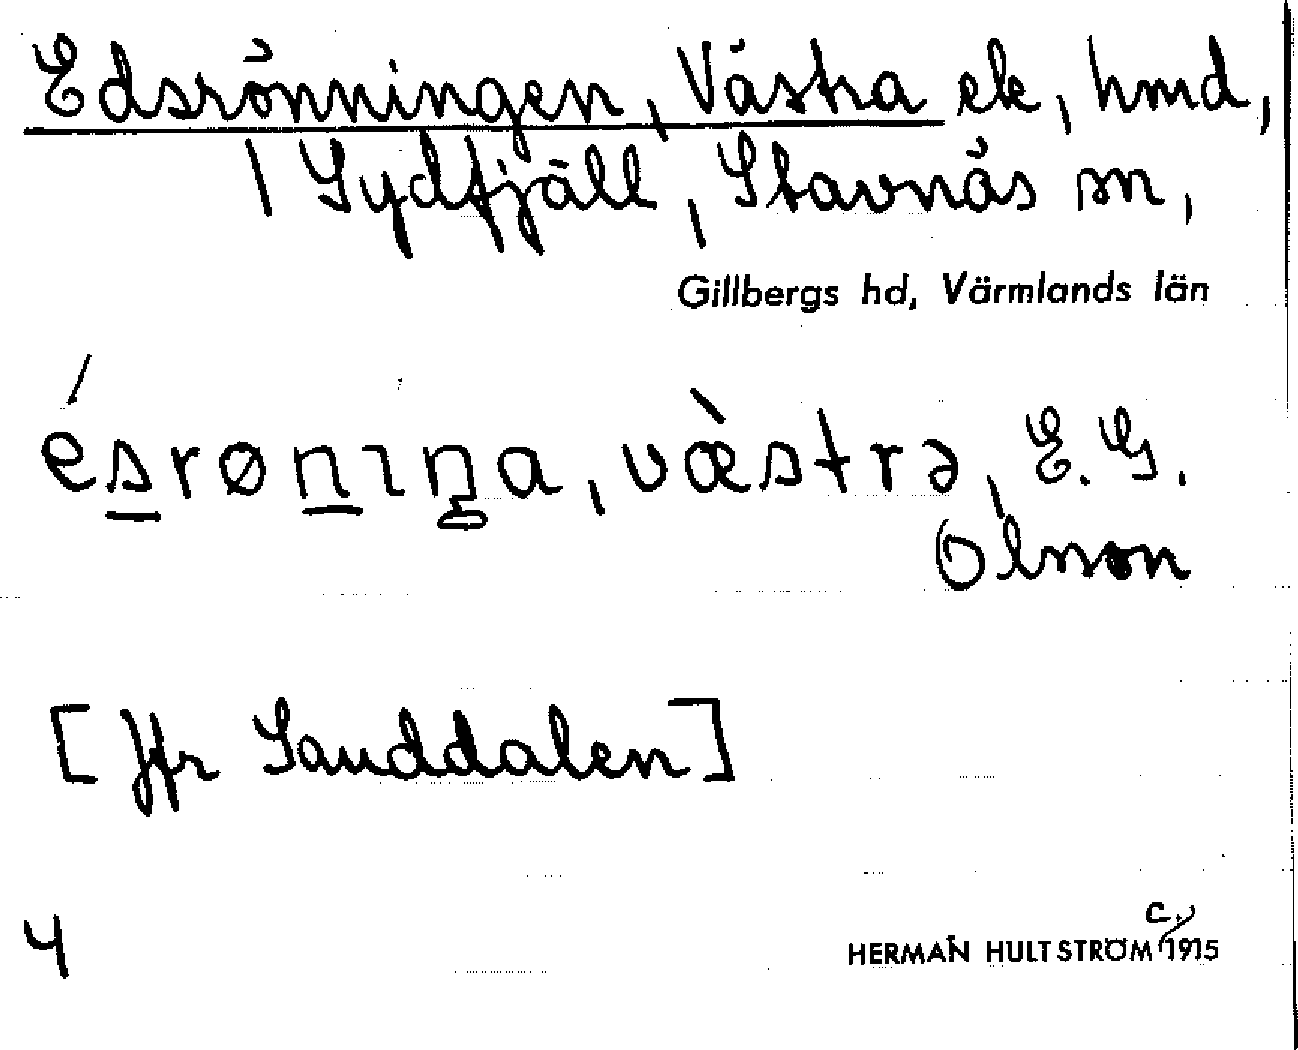 Edsrönningen, Västra ek, hmd,
1 Sydfjäll, Stavnäs sn,
Gillbergs hd, Värmlands län
ésrønıŋa, væ̀strə, E. G.
Olsson
[Jfr Sanddalen]
4
HERMAN HULTSTRÖM c. 1915